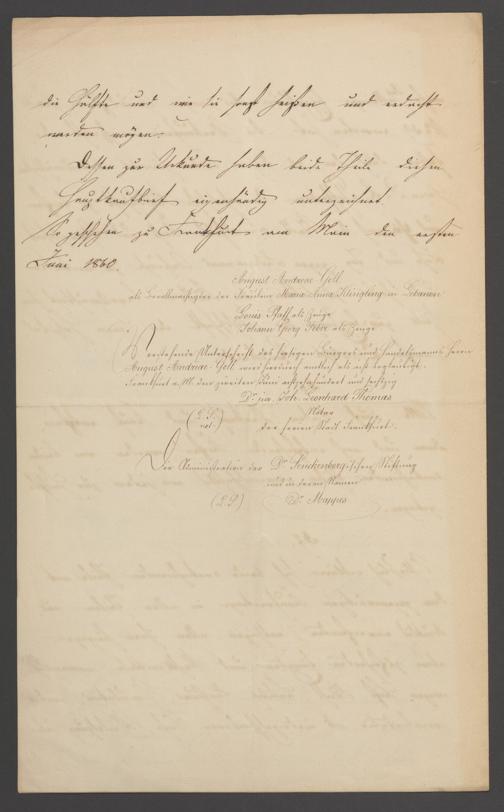 die Hälfte und wie sie sonst heißen und erdacht
werden mögen.
Dessen zur Urkunde haben beide Theile diesen
Hauptkaufbrief eigenhändig unterzeichnet
So geschehen zu Frankfurt am Main den ersten
Juni 1860.
August Andreae Goll
als Bevollmächtigter der Fräulein Maria Anna Klingling in Lebanon
Louis Pfaff als Zeuge
Johann Georg als Zeuge
Vorstehende Unterschrift des hiesigen Bürgers und Handelsmanns Herrn
August Andreae-Goll wird hierdurch amtlich als ächt beglaubigt.
Frankfurt a. M. den zweiten Juni achtzehnhundert und sechzig
Dr. jur. Joh. Leonhard Thomas
(L. S. not.)
Notar
der freien Stadt Frankfurt.
Der Administration der Dr. Senckenbergischen Stiftung
und in deren Namen
(L. S.) Dr. Mappes